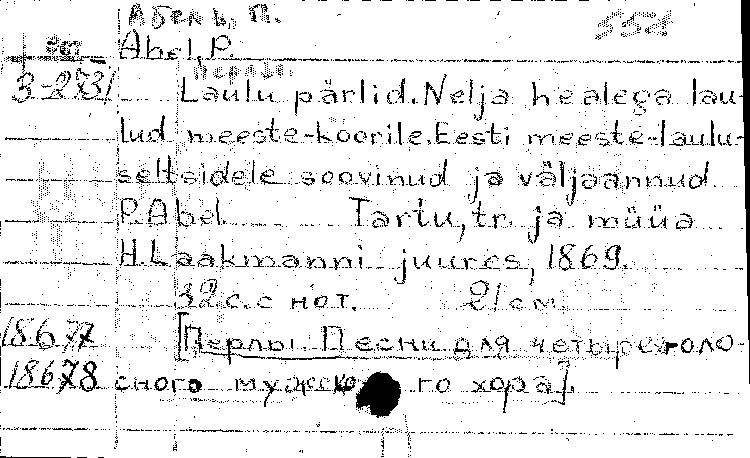 Абель, П.
Abel, P.
Перлы.
3-2731 Laulu pärlid. Nelja healega lau-
lud meeste-koorile. Eesti meeste-laulu-
seltsidele soovinud ja väljaannud
P. Abel. Tartu, tr. ja müüa
H. Laakmanni juures, 1869.
32 с. с нот. 21 см.
18677 [Перлы. Песни для четырехголо-
18678 сного мужско го хора].